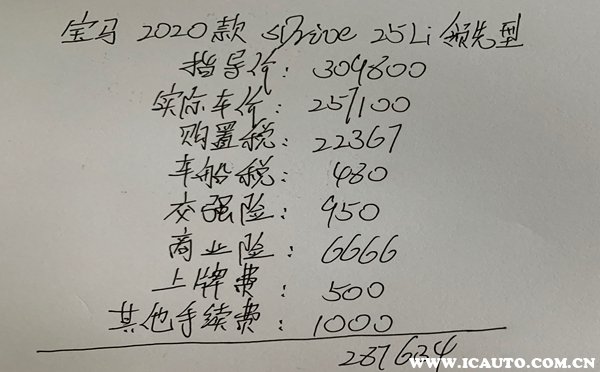 宝马 2020款 sDrive 25Li 领先型
指导价: 309800
实际车价: 257100
购置税: 22367
车船税: 480
交强险: 950
商业险: 6666
上牌费: 500
其他手续费: 1000
爱卡汽车
WWW.ICAUTO.COM.CN